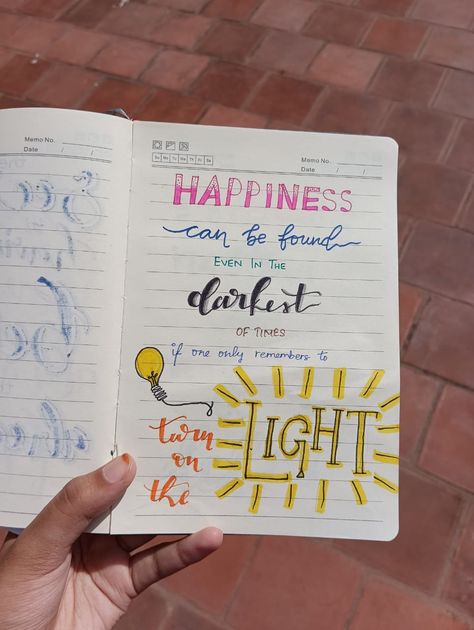 Memo No.
Date
Memo No.
Date
Su Mo Tu We Th Fr Sa
HAPPINESS
can be found
EVEN IN THE
darkest
OF TIMES
if one only remembers to
turn
on
the
LIGHT